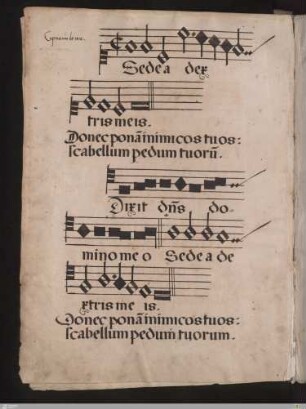 Sede a dex
tris meis.
Donec ponā inimicos tuos:
scabellum pedum tuorū.
Dixit dn̄s do-
mino meo Sede a de
xtris me is.
Donec ponā inimicos tuos:
scabellum pedum tuorum.